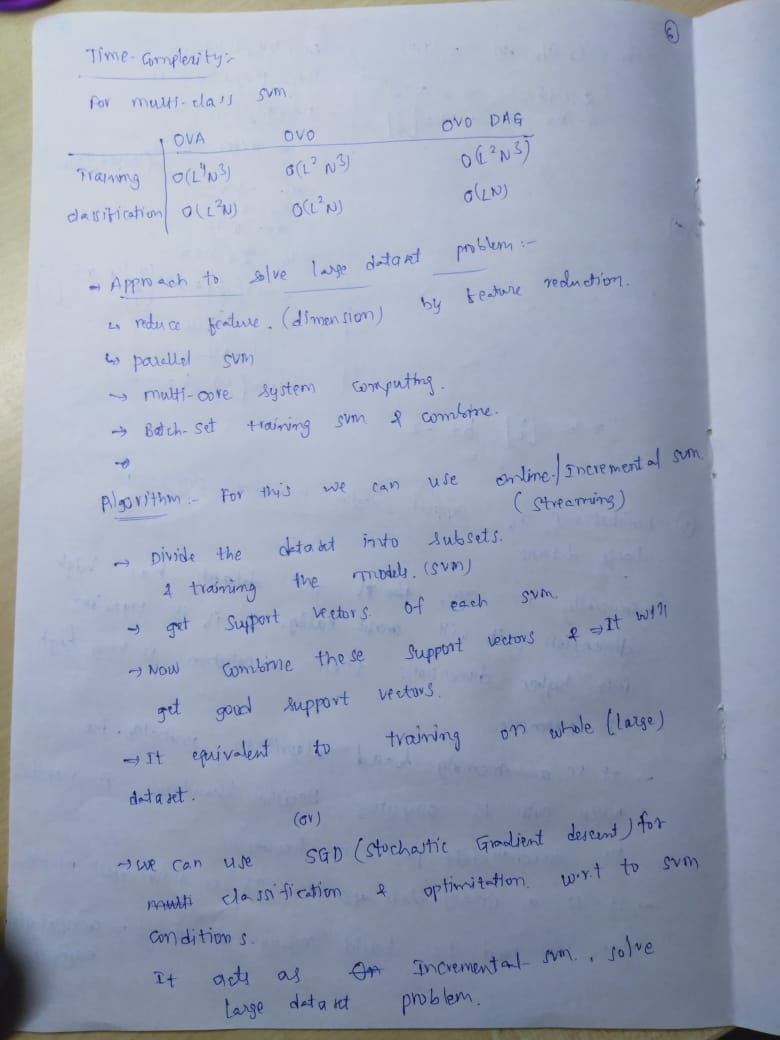 6
Time-Complexity:-
For multi-class SVM
OVA OVO OVO DAG
Training O(L⁴N³) O(L²N³) O(L²N³)
classification O(L²N) O(L²N) O(LN)
→ Approach to solve large dataset problem :-
↳ reduce feature. (dimension) by feature reduction.
↳ parallel SVM
→ multi-core system computing.
→ Batch-set training SVM & combine.
→
Algorithm:- For this we can use online/Incremental SVM
(streaming)
→ Divide the dataset into subsets.
& training the models. (SVM)
→ get support vectors of each SVM.
→ Now combine these support vectors & ⇒ It will
get good support vectors.
→ It equivalent to training on whole (large)
dataset.
(or)
→ we can use SGD (Stochastic Gradient descent) for
multi classification & optimization w.r.t to SVM
conditions.
It acts as On Incremental SVM, solve
large dataset problem.